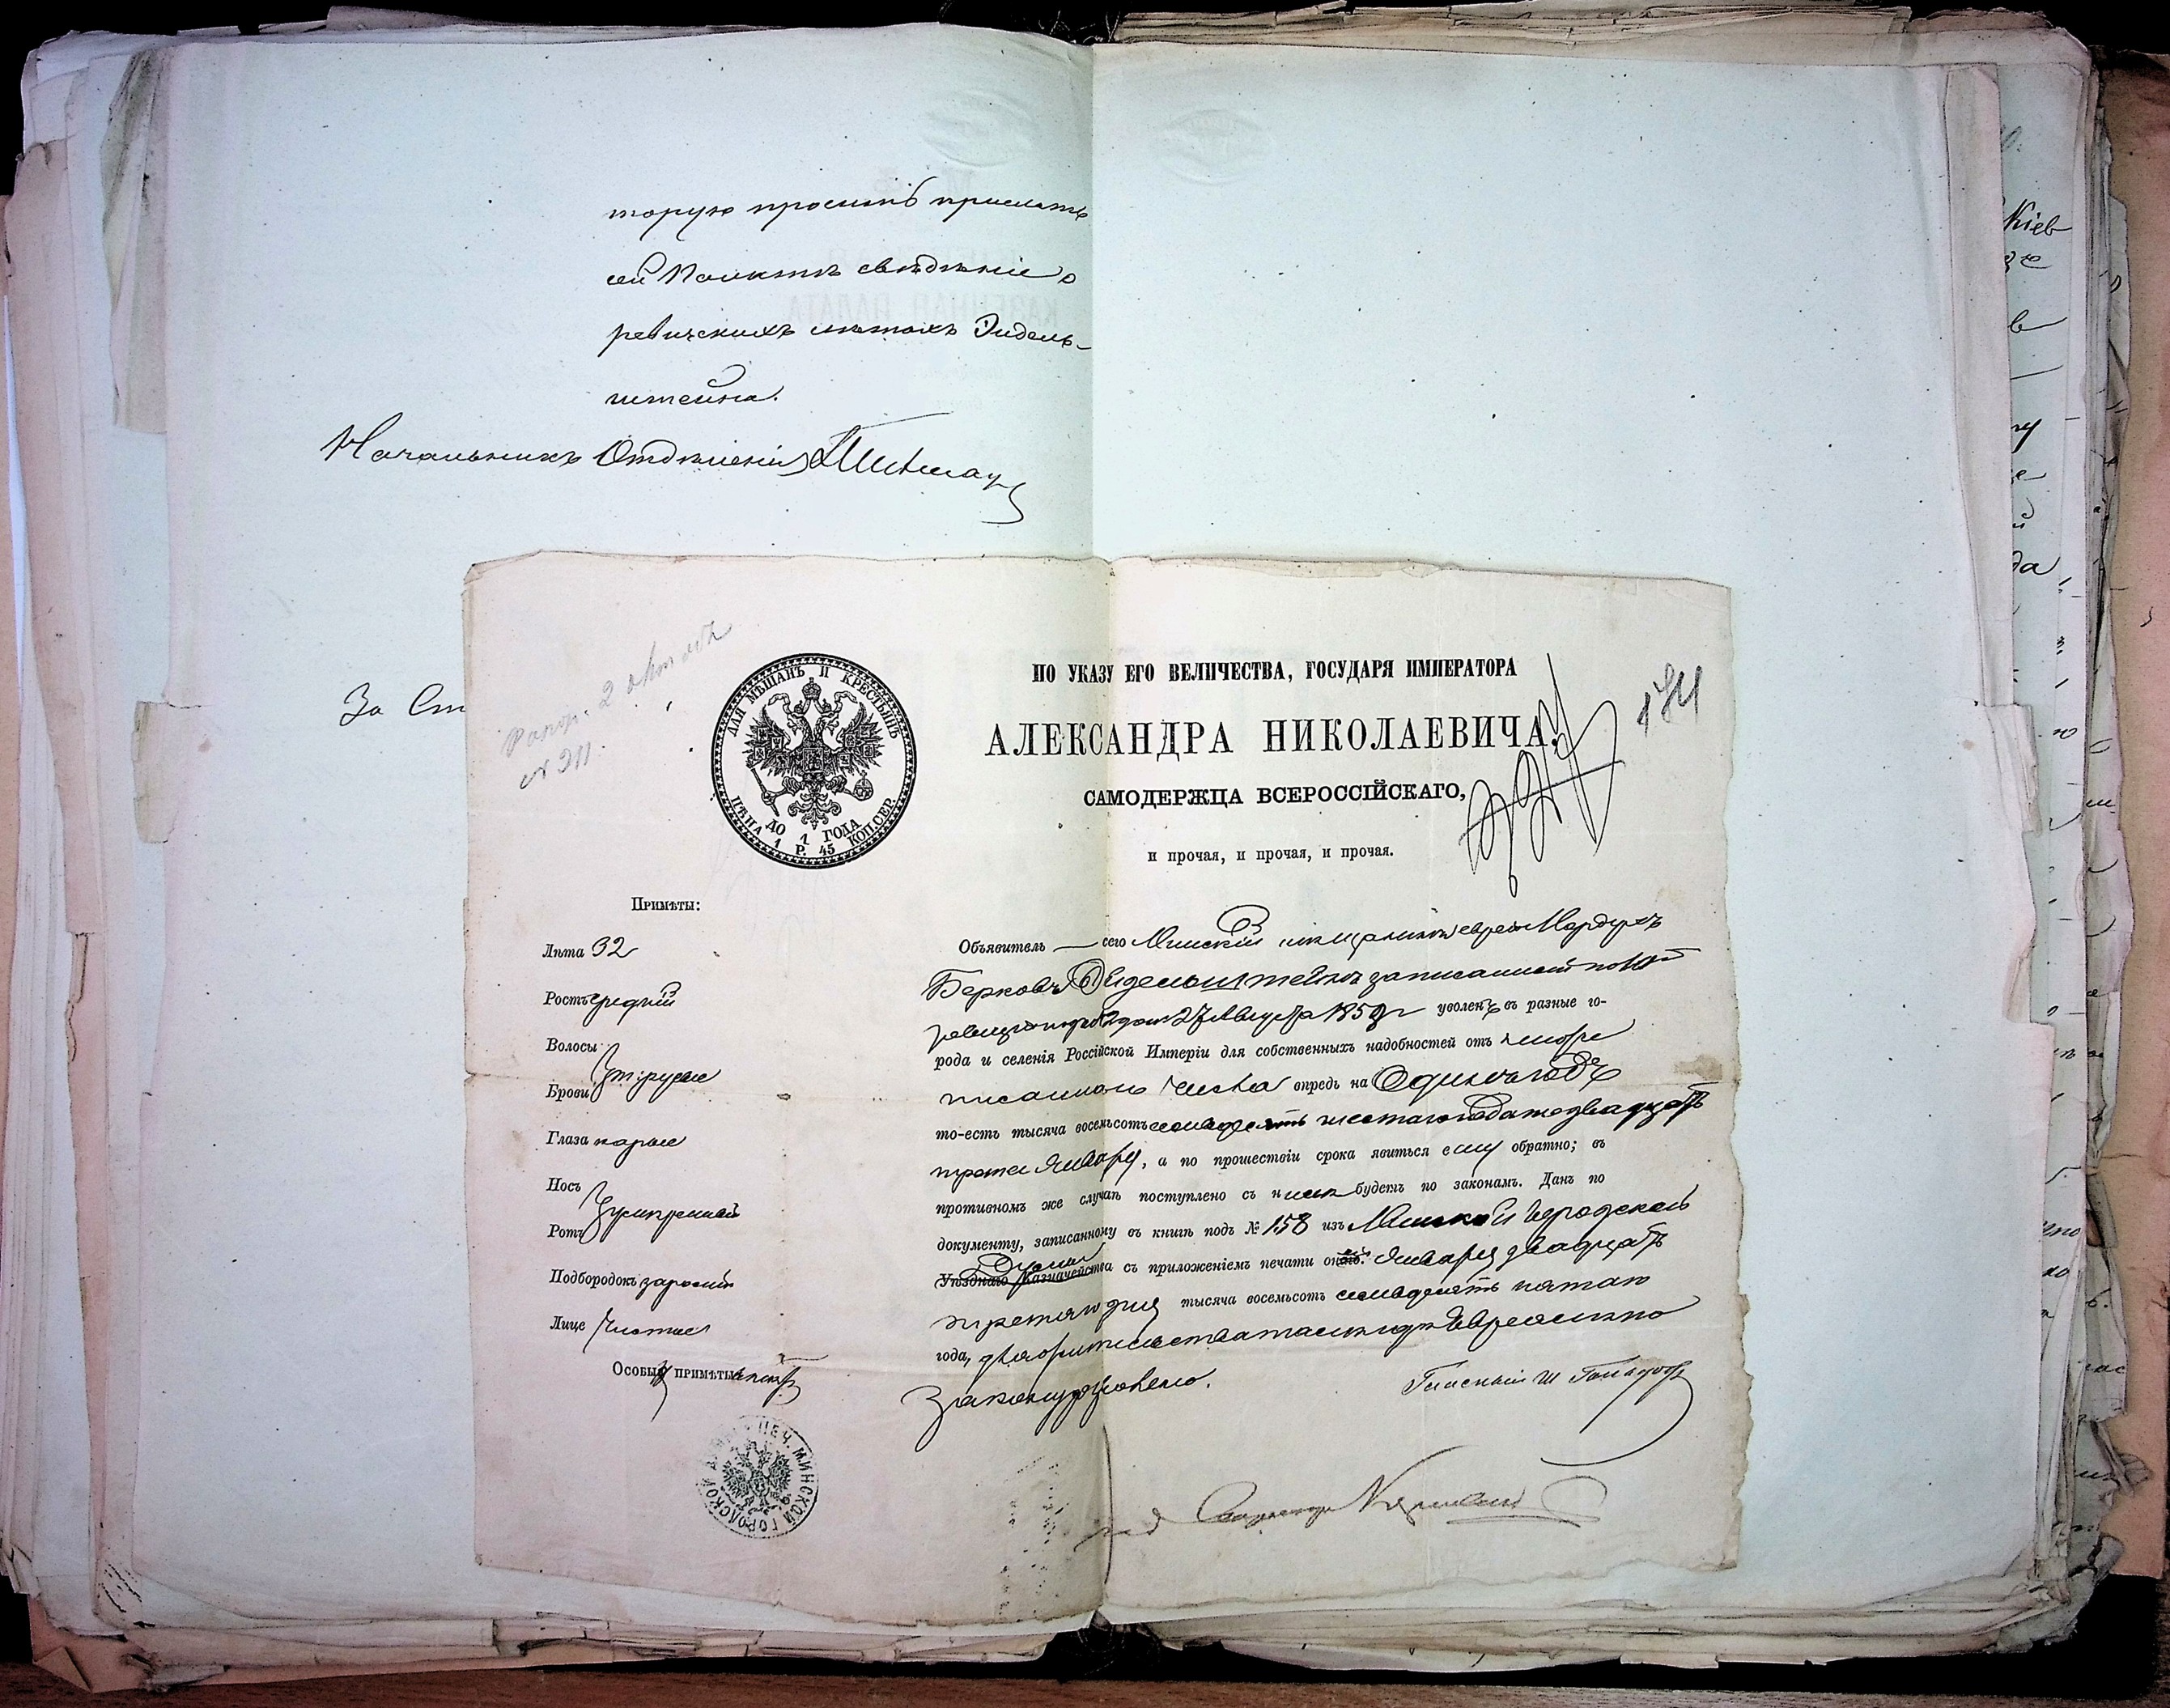 торую проситъ прислать
сей Палатѣ свѣдѣніе о
ревизскихъ лѣтахъ Эйдель-
штейна.
Начальникъ Отдѣленія
За Ст
2
№ 311
ДЛЯ МѢЩАНЪ И КРЕСТЬЯНЪ
ДО 1 ГОДА
ЦѢНА 1 Р. 45 КОП. СЕР.
ПО УКАЗУ ЕГО ВЕЛИЧЕСТВА, ГОСУДАРЯ ИМПЕРАТОРА
АЛЕКСАНДРА НИКОЛАЕВИЧА,
САМОДЕРЖЦА ВСЕРОССІЙСКАГО,
и прочая, и прочая, и прочая.
Примѣты:
Лѣта 32
Ростъ средній
Волосы
Брови русые
Глаза каріе
Носъ
Ротъ умѣренный
Подбородокъ заросшій
Лице Чистое
Особыя примѣты нѣтъ
Объявитель сего Минскій мѣщанинъ еврей Мордухъ
Берковъ Эйдельштейнъ записанный по
ревизіи 27 Августа 185 г уволенъ въ разные го-
рода и селенія Россійской Имперіи для собственныхъ надобностей отъ ниже
писанного числа впредь на Одинъ годъ
то-есть тысяча восемьсотъ семьдесятъ шестаго года по двадцать
третье Января, а по прошествіи срока явиться ему обратно; въ
противномъ же случаѣ поступлено съ нимъ будетъ по законамъ. Данъ по
документу, записанному въ книгѣ подъ № 158 изъ Минской Городской
Думы
Уѣзднаго Казначейства съ приложеніемъ печати оной. Января двадцать
третьяго дня тысяча восемьсотъ семьдесятъ пятаго
года, для жительства тамъ гдѣ Евреямъ по
закону дозволено.
Гласный Ш
ПЕЧ. МИНСКОЙ ГОРОДСКОЙ ДУМЫ